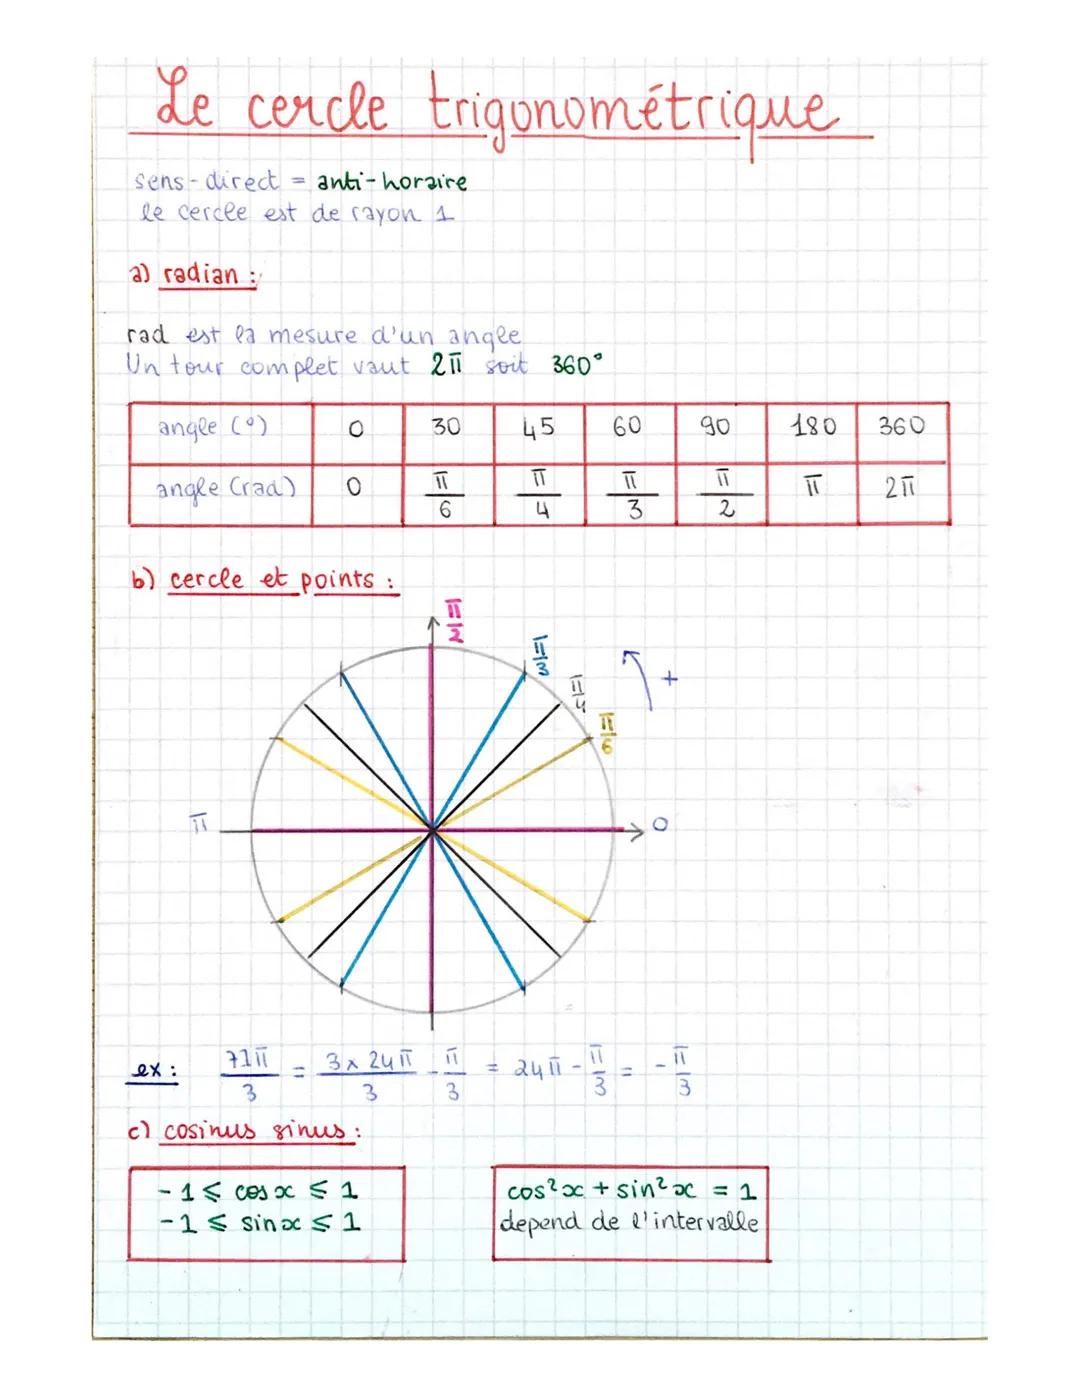 Le cercle trigonométrique
sens-direct = anti-horaire
le cercle est de rayon 1
a) radian :
rad est la mesure d'un angle
Un tour complet vaut 2π soit 360°
angle (°) 0 30 45 60 90 180 360
angle (rad) 0 π/6 π/4 π/3 π/2 π 2π
b) cercle et points :
π/2
π/3
π/4
+
π/6
π
0
ex : 71π/3 = 3 x 24π/3 - π/3 = 24π - π/3 = - π/3
c) cosinus sinus :
-1 ⩽ cos x ⩽ 1
-1 ⩽ sin x ⩽ 1
cos² x + sin² x = 1
depend de l'intervalle